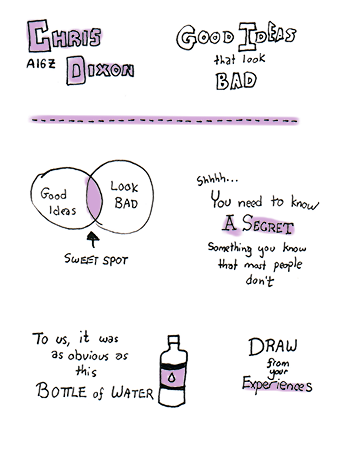 CHRIS
A16Z DIXON
GOOD IDEAS
that look
BAD
Good
Ideas
Look
BAD
SWEET SPOT
Shhhh...
You need to know
A SECRET
Something you know
that most people
don't
To us, it was
as obvious as
this
BOTTLE of WATER
DRAW
from
your
Experiences